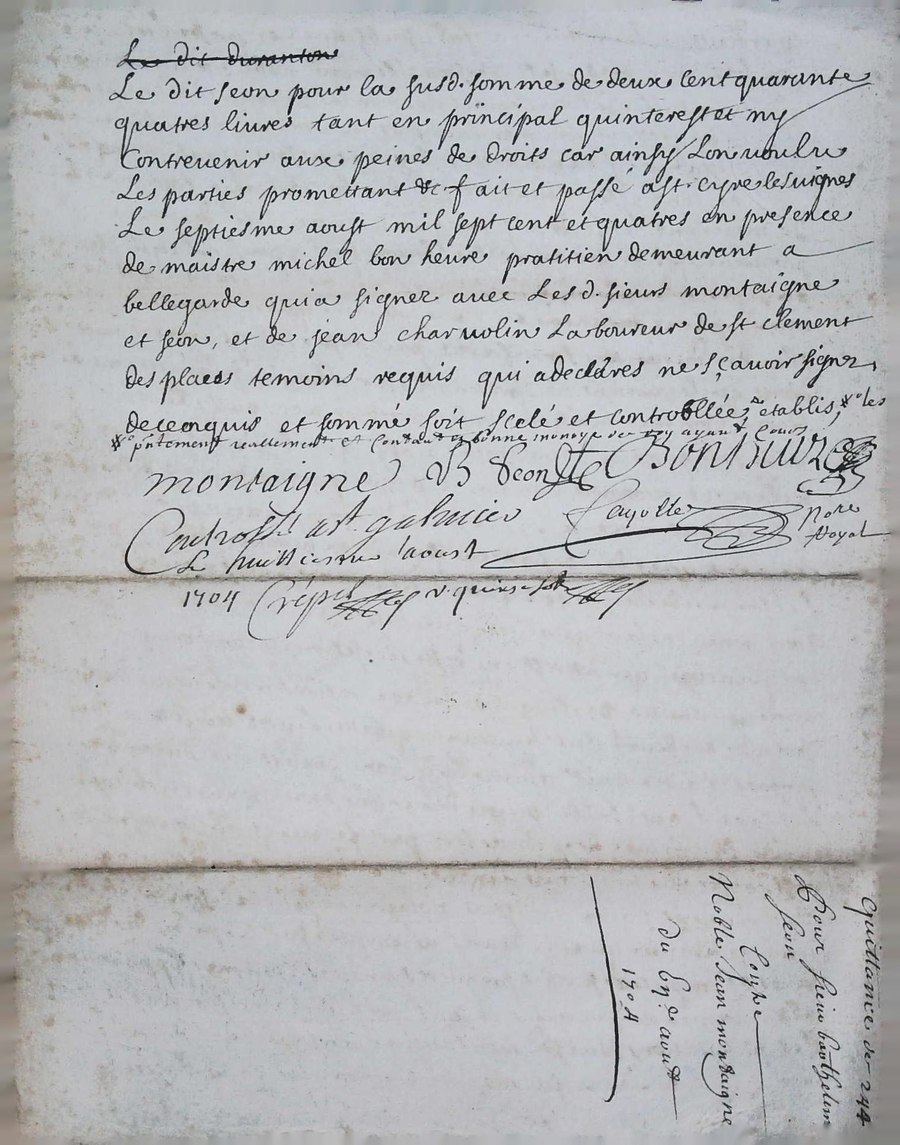 Le dit duranton
Le dit seon pour la susd. somme de deux cent quarante
quatres livres tant en principal quinterest et ny
contrevenir aux peines de droits car ainsy Lon voulu
Les parties promettant &c fait et passé a st. cyre les vignes
Le septiesme aoust mil sept cent et quatres en presence
de maistre michel bon heure pratitien demeurant a
bellegarde qui a signez avec Les d. sieurs montaigne
et seon, et de jean charvolin Laboureur de st clement
des places temoins requis qui a declares ne sçavoir signer,
de ce enquis et sommé soit scelé et controollée, etablis, les
reellement et bonne monoye de ayant cours
montaigne B Seon Bonheure
Controllé a st galmier Cayotte Nore
Le huittiesme aoust Royal
1704 Crépet r. quinse sols
Quittance de 244
Pour sieur barthelemy
seon
Noble Jean montaigne
du aoust
1704